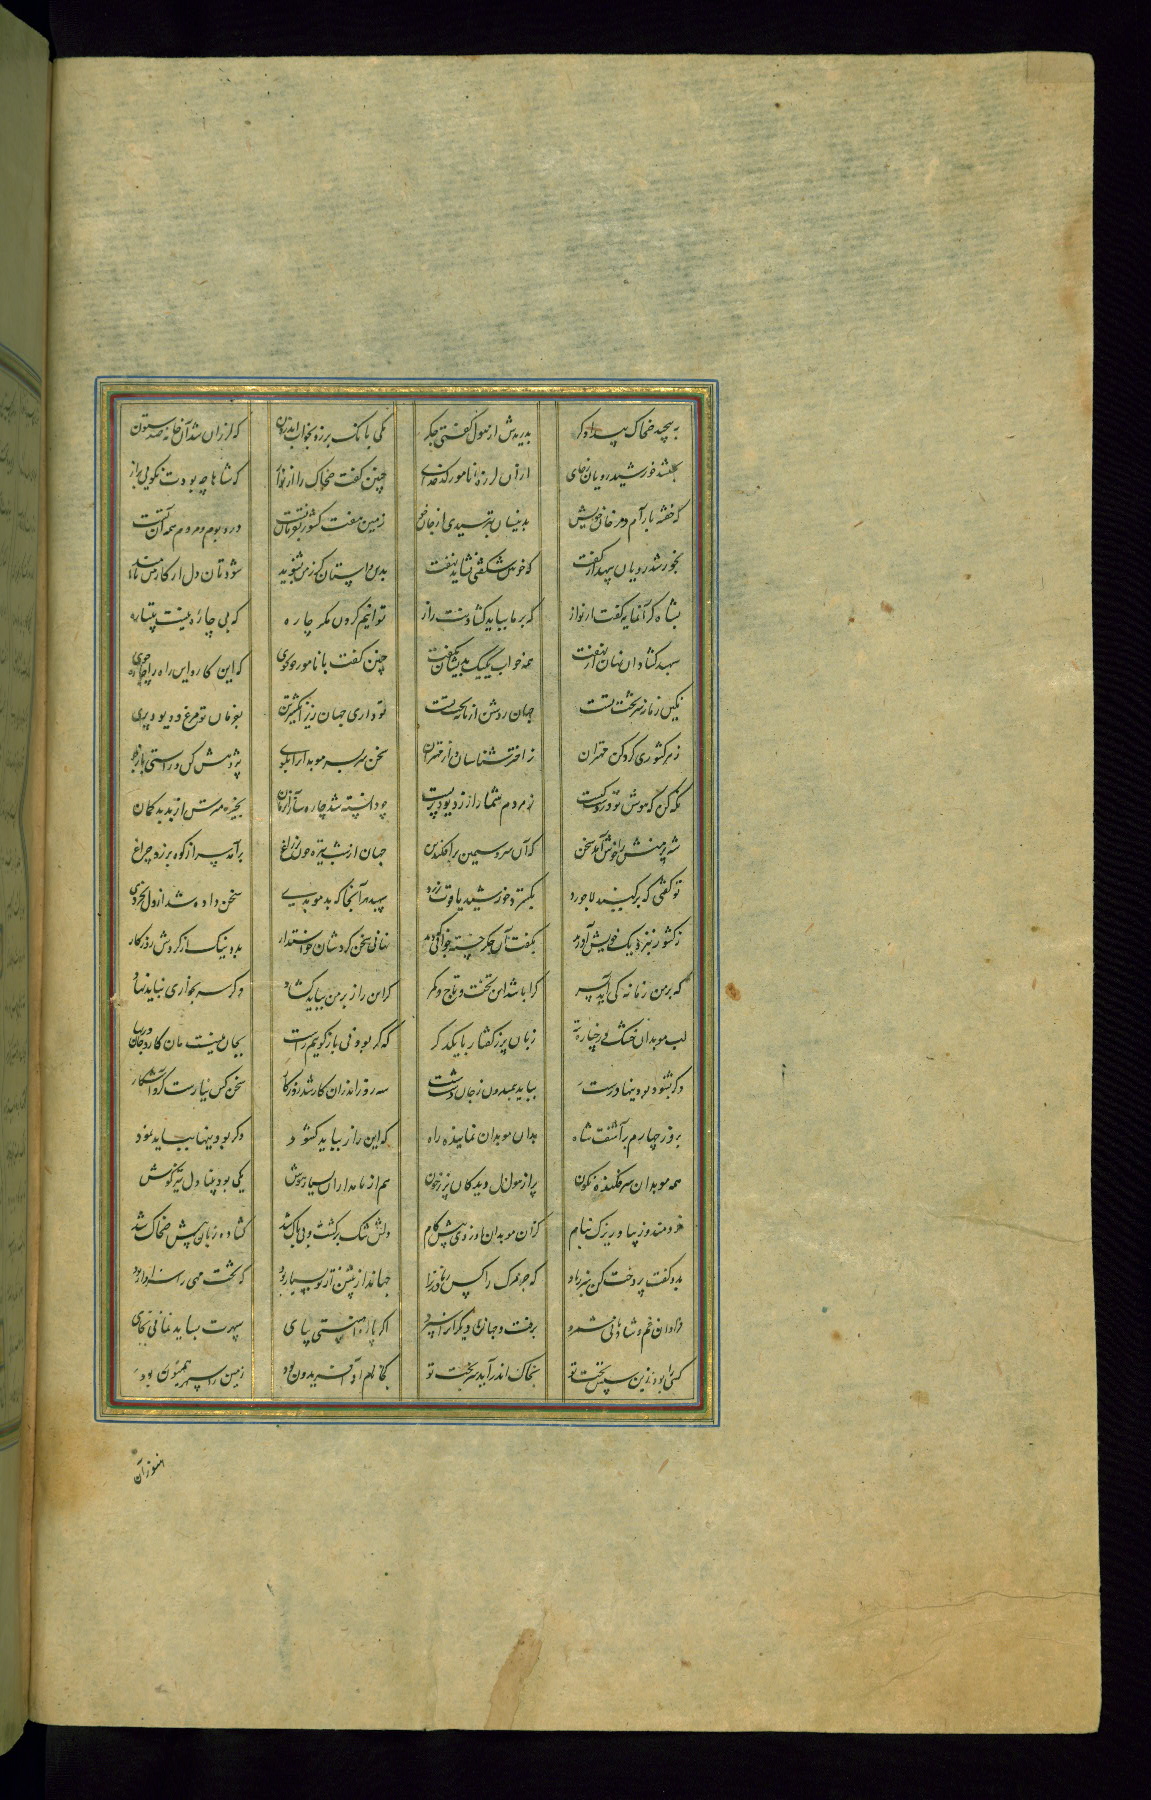 به پیچید ضحاک بیدادگر بدریدش از هول گفتی جگر یکی بانگ برزد بخواب اندرون که لرزان شد آن خانه صد ستون
بجستند خورشید رویان ز جای از آن لرزه نامور کدخدای چنین گفت ضحاک را ارنواز که شاها چه بودت نگویی براز
که خفته بآرام در خان خویش بدینسان بترسیدی از جان خویش زمین هفت کشور بفرمان تست دد و بوم و مردم همه آن تست
بخورشید رویان سپهدار گفت که خوابی شگفتی نشاید نهفت بدین داستان گر ز من بشنوید شودتان دل از کار من ناامید
بشاه گرانمایه گفت ارنواز که بر ما بباید گشادنت راز توانیم کردن مگر چاره که بی چاره نیست پتیاره
سپهبد گشاد آن نهان از نهفت همه خواب یک یک بدیشان بگفت چنین گفت با نامور خوبروی که این کار و این راه را چاره جوی
نگین زمانه سر تخت تست جهان روشن از مایه بخت تست تو داری جهان زیر انگشتری بفرمان تو مرغ و دیو و پری
ز هر کشوری گرد کن مهتران ز اختر شناسان و از مهتران سخن سربسر موبدان را بگوی پژوهش کن و راستی باز جوی
نگه کن که هوش تو در دست کیست ز مردم شمار ار ز دیو و پریست چو دانسته شد چاره ساز آن زمان بخیره مترس از بد بدگمان
شه پر منش را خوش آمد سخن که آن سرو سیمین برافکند بن جهان از شب تیره چون پر زاغ برآمد سر از کوه برزد چراغ
تو گفتی که بر گنبد لاجورد بگسترد خورشید یاقوت زرد سپهبد هر آنجا که بد موبدی سخن دان و بیدار دل بخردی
ز کشور بنزدیک خویش آورید بگفت آن جگر خسته خوابی که دید نهانی سخن کردشان خواستار بد و نیک از گردش روزگار
که بر من زمانه کی آید بسر کرا باشد این تخت و تاج و کمر گر این راز بر من بباید گشاد و گر سر بخواری بباید نهاد
لب موبدان خشک و رخساره تر زبان پر ز گفتار با یکدگر که گر بودنی باز گوییم راست بجانست پیکار و جان بی بهاست
و گر نشنود بودنیها درست بباید هم اکنون ز جان دست شست سه روز اندر آن کار شد روزگار سخن کس نیارست کرد آشکار
بروز چهارم برآشفت شاه بدان موبدان نماینده راه که این راز باید گشود و گر بودنیها بباید نمود
همه موبدان سر فکنده نگون پر از هول دل دیدگان پر ز خون هم از نامداران بسیار هوش یکی بود بینا دل تیز گوش
کزان موبدان او زدی پیش گام دلش تنگ تر گشت و بی باک شد گشاده زبان پیش ضحاک شد
بدو گفت پردخت کن سر ز باد که جز مرگ را کس ز مادر نزاد جهاندار پیش از تو بسیار بود که تخت مهی را سزاوار بود
فراوان غم و شادمانی شمرد برفت و جهان دیگری را سپرد اگر باره آهنینی بپای سپهرت بساید نمانی بجای
کسی را بود زین سپس تخت تو بخاک اندر آید سر بخت تو کجا نام او آفریدون بود زمین را سپهر همایون بود
هنوز آن